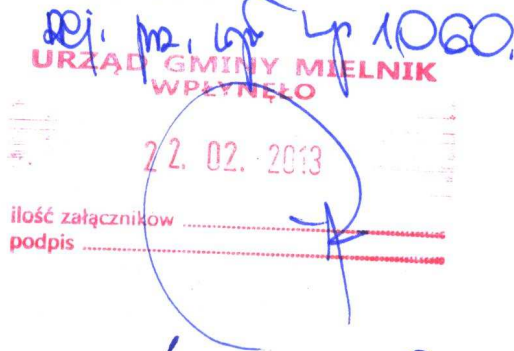 Rej. prz. wpł Lp 1060.
URZĄD GMINY MIELNIK
WPŁYNĘŁO
22. 02. 2013
ilość załączników
podpis